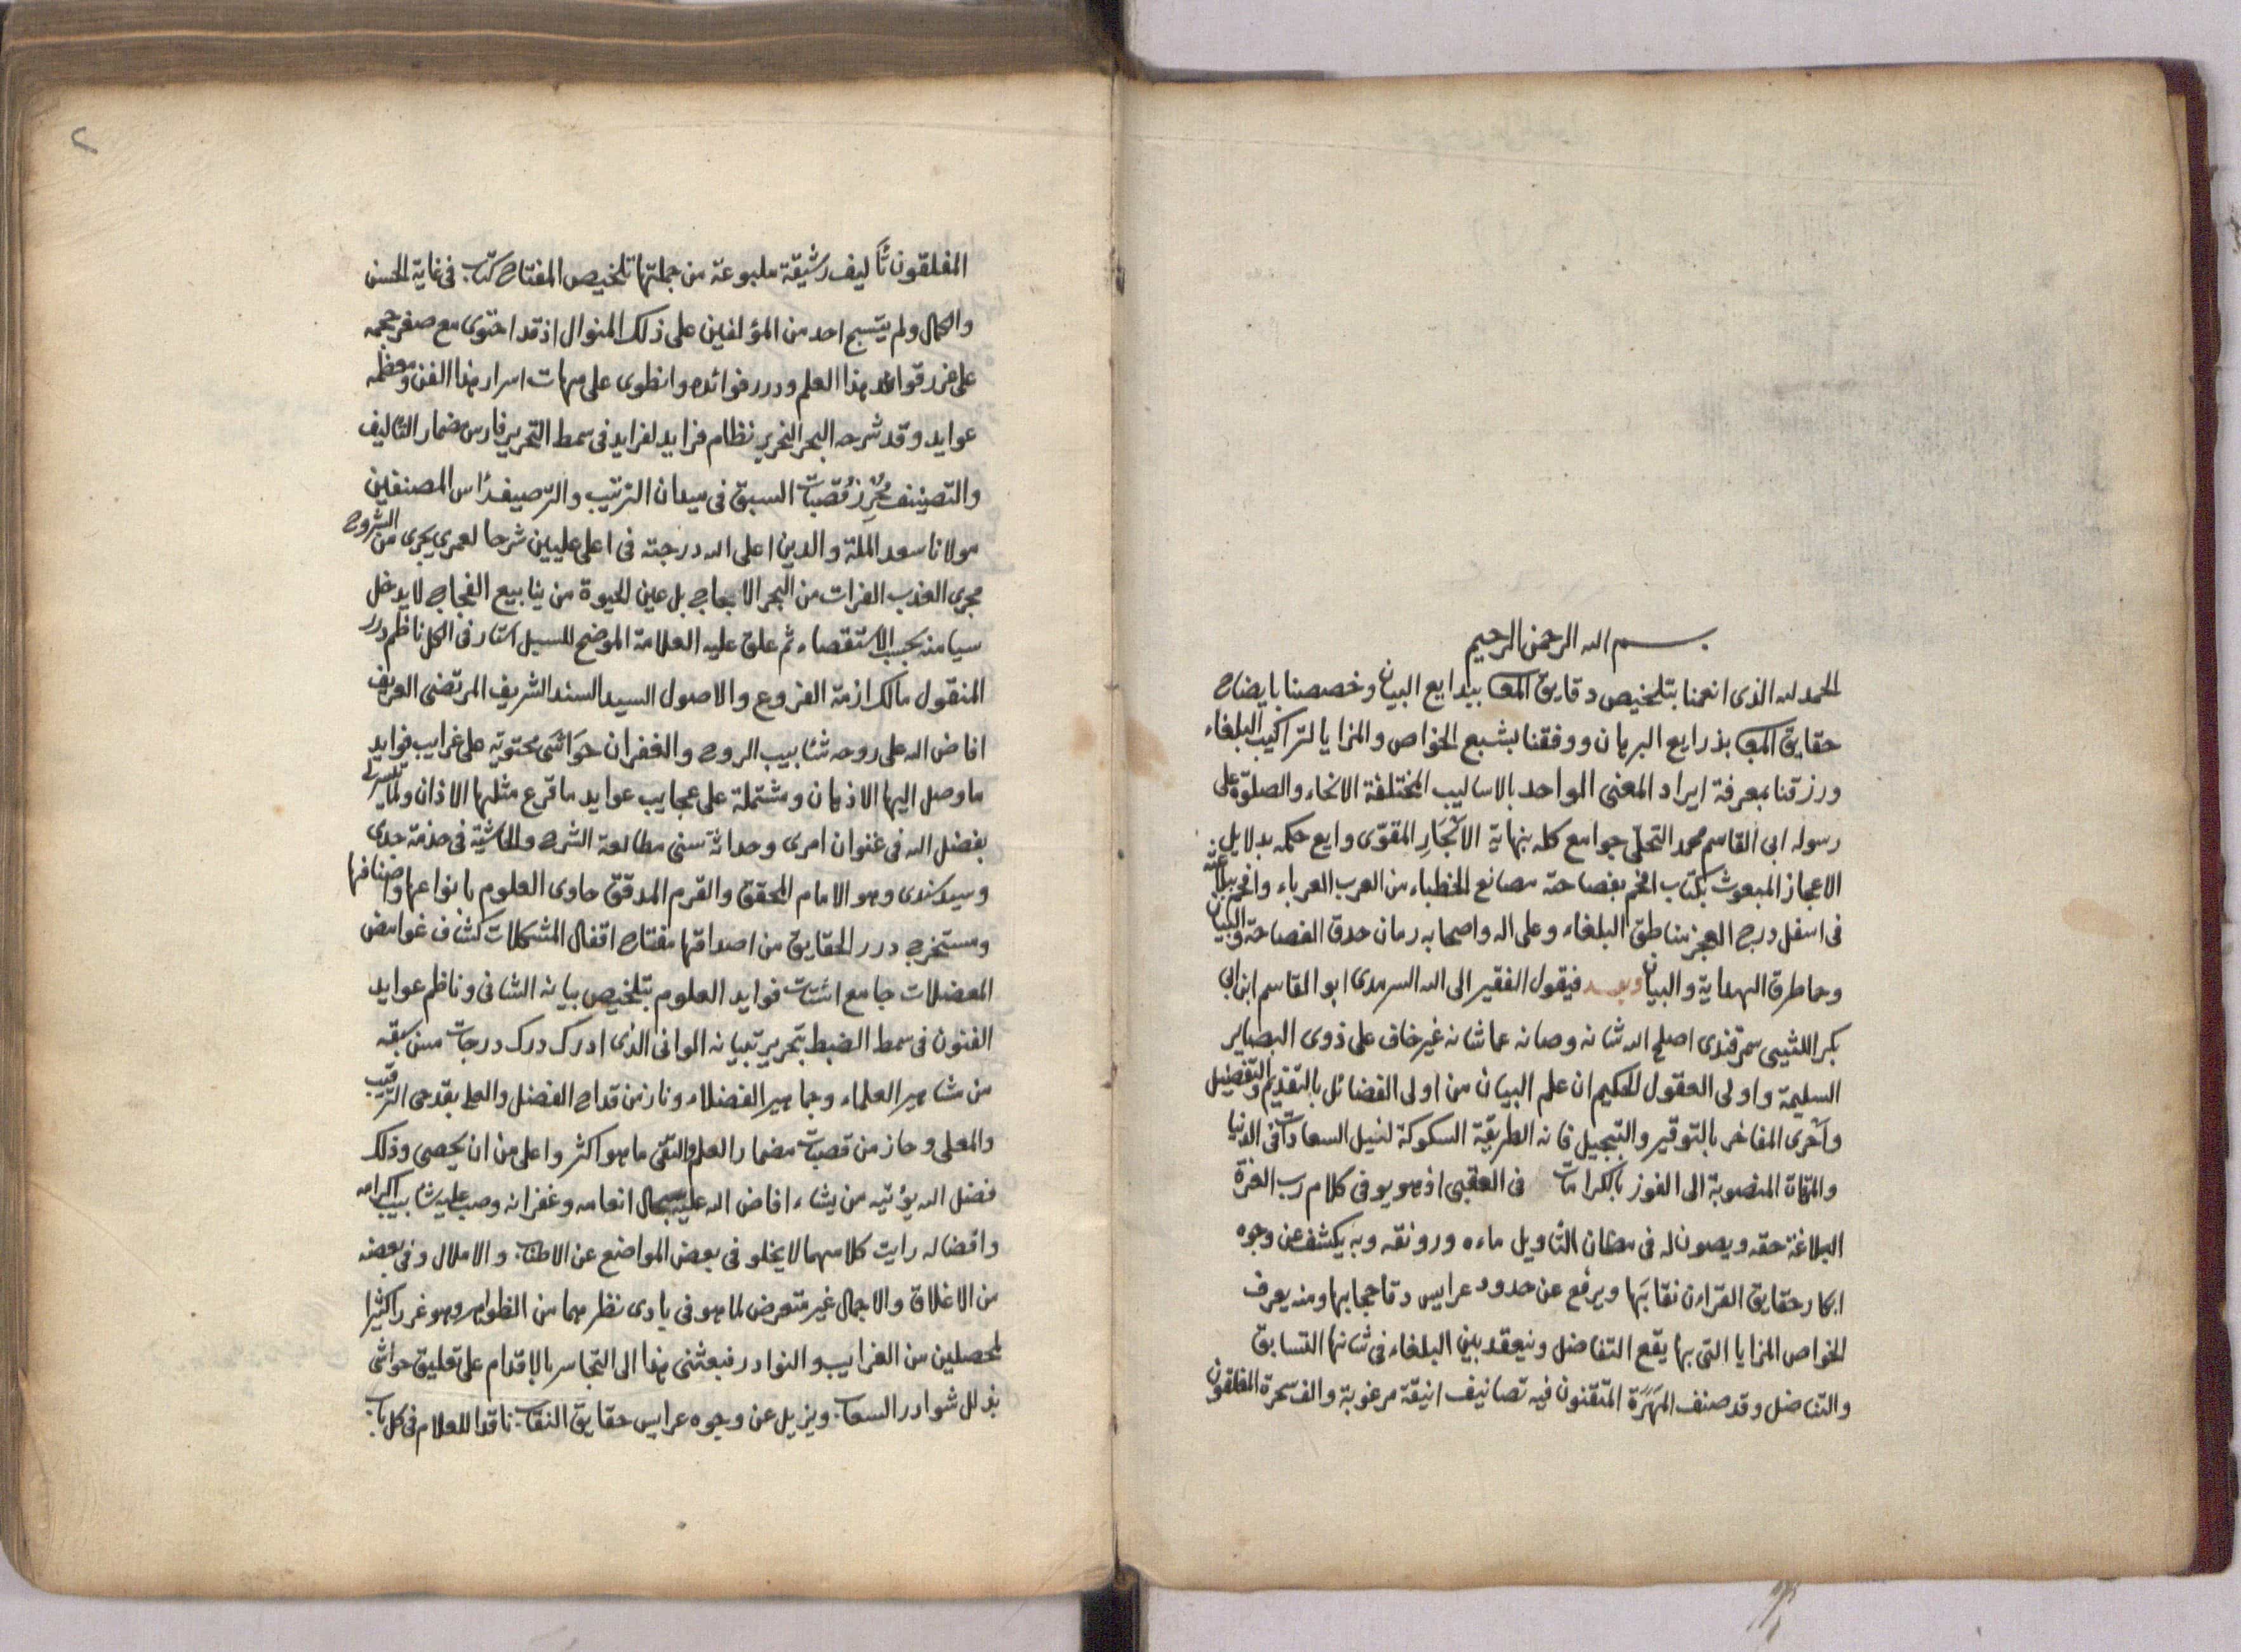 بسم الله الرحمن الرحيم
الحمد لله الذى انعمنا بتلخيص دقايق المعا ببدايع البيان وخصصنا بايضاح
حقايق المعا بذرايع البرهان ووفقنا بتتبع الخواص والمزايا لتراكيب البلغاء
ورزقنا بمعرفة ايراد المعنى الواحد بالاساليب المختلفة الانحاء والصلوة على
رسوله ابى القاسم محمد جوامع كله بنهاية المقوى وايع حكمه بدلايل
الاعجاز المبعوث بكتاب افحم بفصاحته مصاقع الخطباء من العرب العرباء وافحم ببلاغته
فى اسفل درج العجز مناطق البلغاء وعلى اله واصحابه رمان حدق الفصاحة والبيان
وحما طرق الهداية والبيان وبعد فيقول الفقير الى الله السرمدى ابو القاسم ابن ابى
بكر الليثى سمرقندى اصلح الله شانه وصانه عما شانه غير خاف على ذوى البصاير
السليمة واولى العقول الحكيم ان علم البيان من اولى الفضائل بالتقديم والتفضيل
واحرى المفاخر بالتوقير والتبجيل فانه الطريقة السكوكة لنيل السعادات فى الدنيا
والمرقاة المنصوبة الى الفوز بالكرامات فى العقبى اذ هو يوفى كلام رب العزة
البلاغة حقه ويصون له فى مظان التأويل ماءه ورونقه وبه يكشف عن وجوه
ابكار حقايق القرآن نقابها ويرفع عن حدود عرايس دقا حجابها ومنه يعرف
الخواص المزايا التى بها يقع التفاضل وينعقد بين البلغاء فى شانها التسابق
والتناضل وقد صنف المهرة المتقنون فيه تصانيف انيقة مرغوبة والف سحرة المفلقون
٢
المفلقون تأليف رشيقة ملبوعة من جملتها تلخيص المفتاح كتاب فى غاية الحسن
والكمال ولم ينسج احد من المؤلفين على ذلك المنوال اذ قد احتوى مع صغر حجمه
على غرر قواعد هذا العلم ودرر فوائده وانطوى على مهمات اسرار هذا الفن ومعظمه
عوايد وقد شرحه البحر النحرير نظام فرايد لفرايد فى سمط التحرير فارس مضمار التأليف
والتصنيف محرز قصبات السبق فى ميدان الترتيب والترصيف رأس المصنفين
مولانا سعد الملة والدين اعلى الله درجته فى اعلى عليين شرحا لعمرى يجرى من الشروح
مجرى العذب الفرات من البحر الاجاج بل عين الحيوة من ينابيع الفجاج لا يدخل
سيا منه بحسب الاستقصاء ثم علق عليه العلامة الموضح للسبل استار فى الكل ناظم درر
المنقول مالك ازمة الفروع والاصول السيد السند الشريف المرتضى العريف
افاض الله على روحه شابيب الروح والغفران حواشى محتوية على غرايب فوايد
ما وصل اليها الاذهان ومشتملة على عجايب عوايد ما قرع مثلها الاذان ولما تيسر لى
بفضل الله فى عنوان امرى وحداثة سنى مطالعة الشرح والحاشية فى خدمة جدى
وسيد سندى وهو الامام المحقق والقرم المدقق حاوى العلوم بانواعها واصنافها
ومستخرج درر الحقايق من اصدافها مفتاح اقفال المشكلات كشاف غوامض
المعضلات جامع اشتات فوايد العلوم بتلخيص بيانه الشافى وناظم عوايد
الفنون فى سمط الضبط بتحرير تبيانه الوافى الذى ادرك درك درجات من سبقه
من مشاهير العلماء وجماهير الفضلاء ونار من قداح الفضل والعلم بقدحى الرقيب
والمعلى وحاز من قصبات مضمار العلم والتقى ما هو اكثر واعلى من ان يحصى وذلك
فضل الله يؤتيه من يشاء افاض الله عليه سجال انعامه وغفرانه وصب عليه شابيب اكرامه
وافضاله رايت كلامهما لا يخلو فى بعض المواضع عن الاطناب والاملال وفى بعضه
من الاغلاق والاجمال غير متعرض لما هو فى بادى نظرهما من الظواهر وهو غرر اكثيرا
لمحصلين من الغرايب والنوادر فبعثنى هذا الى التجاسر بالاقدام على تعليق حواشى
يذلل شوارد الصعاب ويزيل عن وجوه عرايس حقايق النقاب ناقدا للعلام فى كل باب